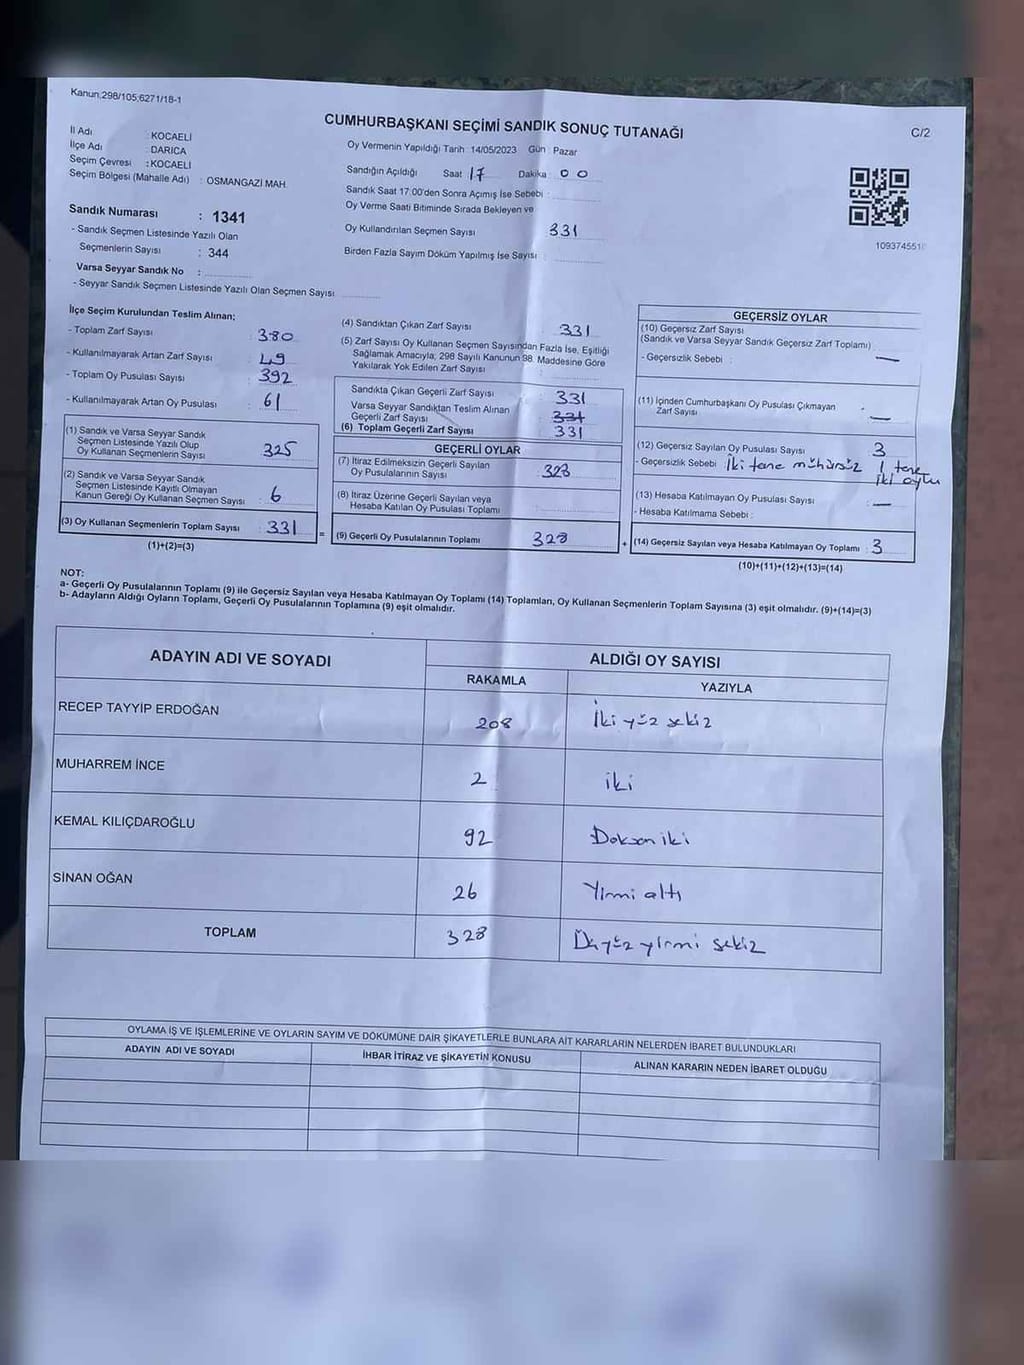 Kanun:298/105;6271/18-1
CUMHURBAŞKANI SEÇİMİ SANDIK SONUÇ TUTANAĞI
C/2
İl Adı : KOCAELİ
İlçe Adı : DARICA
Seçim Çevresi : KOCAELİ
Seçim Bölgesi (Mahalle Adı) : OSMANGAZİ MAH.
Sandık Numarası : 1341
- Sandık Seçmen Listesinde Yazılı Olan
Seçmenlerin Sayısı : 344
Varsa Seyyar Sandık No :
- Seyyar Sandık Seçmen Listesinde Yazılı Olan Seçmen Sayısı
Oy Vermenin Yapıldığı Tarih :14/05/2023 Gün : Pazar
Sandığın Açıldığı Saat 17 Dakika : 00
Sandık Saat 17:00'den Sonra Açımış İse Sebebi :
Oy Verme Saati Bitiminde Sırada Bekleyen ve
Oy Kullandırılan Seçmen Sayısı 331
Birden Fazla Sayım Döküm Yapılmış İse Sayısı :
109374551
İlçe Seçim Kurulundan Teslim Alınan;
- Toplam Zarf Sayısı : 380
- Kullanılmayarak Artan Zarf Sayısı : 49
- Toplam Oy Pusulası Sayısı : 392
- Kullanılmayarak Artan Oy Pusulası : 61
(1) Sandık ve Varsa Seyyar Sandık
Seçmen Listesinde Yazılı Olup
Oy Kullanan Seçmenlerin Sayısı : 325
(2) Sandık ve Varsa Seyyar Sandık
Seçmen Listesinde Kayıtlı Olmayan
Kanun Gereği Oy Kullanan Seçmen Sayısı : 6
(3) Oy Kullanan Seçmenlerin Toplam Sayısı : 331
(1)+(2)=(3)
=
(4) Sandıktan Çıkan Zarf Sayısı : 331
(5) Zarf Sayısı Oy Kullanan Seçmen Sayısından Fazla İse, Eşitliği
Sağlamak Amacıyla, 298 Sayılı Kanunun 98. Maddesine Göre
Yakılarak Yok Edilen Zarf Sayısı :
Sandıkta Çıkan Geçerli Zarf Sayısı : 331
Varsa Seyyar Sandıktan Teslim Alınan
Geçerli Zarf Sayısı : 331
(6) Toplam Geçerli Zarf Sayısı : 331
GEÇERLİ OYLAR
(7) İtiraz Edilmeksizin Geçerli Sayılan
Oy Pusulalarının Sayısı : 328
(8) İtiraz Üzerine Geçerli Sayılan veya
Hesaba Katılan Oy Pusulası Toplamı :
(9) Geçerli Oy Pusulalarının Toplamı : 328
+
GEÇERSİZ OYLAR
(10) Geçersiz Zarf Sayısı
(Sandık ve Varsa Seyyar Sandık Geçersiz Zarf Toplamı) :
- Geçersizlik Sebebi : —
(11) İçinden Cumhurbaşkanı Oy Pusulası Çıkmayan
Zarf Sayısı : —
(12) Geçersiz Sayılan Oy Pusulası Sayısı : 3
- Geçersizlik Sebebi : İki tane mühürsüz 1 tane
iki oylu
(13) Hesaba Katılmayan Oy Pusulası Sayısı : —
- Hesaba Katılmama Sebebi :
(14) Geçersiz Sayılan veya Hesaba Katılmayan Oy Toplamı : 3
(10)+(11)+(12)+(13)=(14)
NOT:
a- Geçerli Oy Pusulalarının Toplamı (9) ile Geçersiz Sayılan veya Hesaba Katılmayan Oy Toplamı (14) Toplamları, Oy Kullanan Seçmenlerin Toplam Sayısına (3) eşit olmalıdır. (9)+(14)=(3)
b- Adayların Aldığı Oyların Toplamı, Geçerli Oy Pusulalarının Toplamına (9) eşit olmalıdır.
ADAYIN ADI VE SOYADI
ALDIĞI OY SAYISI
RAKAMLA YAZIYLA
RECEP TAYYİP ERDOĞAN 208 İki yüz sekiz
MUHARREM İNCE 2 iki
KEMAL KILIÇDAROĞLU 92 Doksan iki
SİNAN OĞAN 26 Yirmi altı
TOPLAM 328 Üçyüz yirmi sekiz
OYLAMA İŞ VE İŞLEMLERİNE VE OYLARIN SAYIM VE DÖKÜMÜNE DAİR ŞİKAYETLERLE BUNLARA AİT KARARLARIN NELERDEN İBARET BULUNDUKLARI
ADAYIN ADI VE SOYADI İHBAR İTİRAZ VE ŞİKAYETİN KONUSU ALINAN KARARIN NEDEN İBARET OLDUĞU